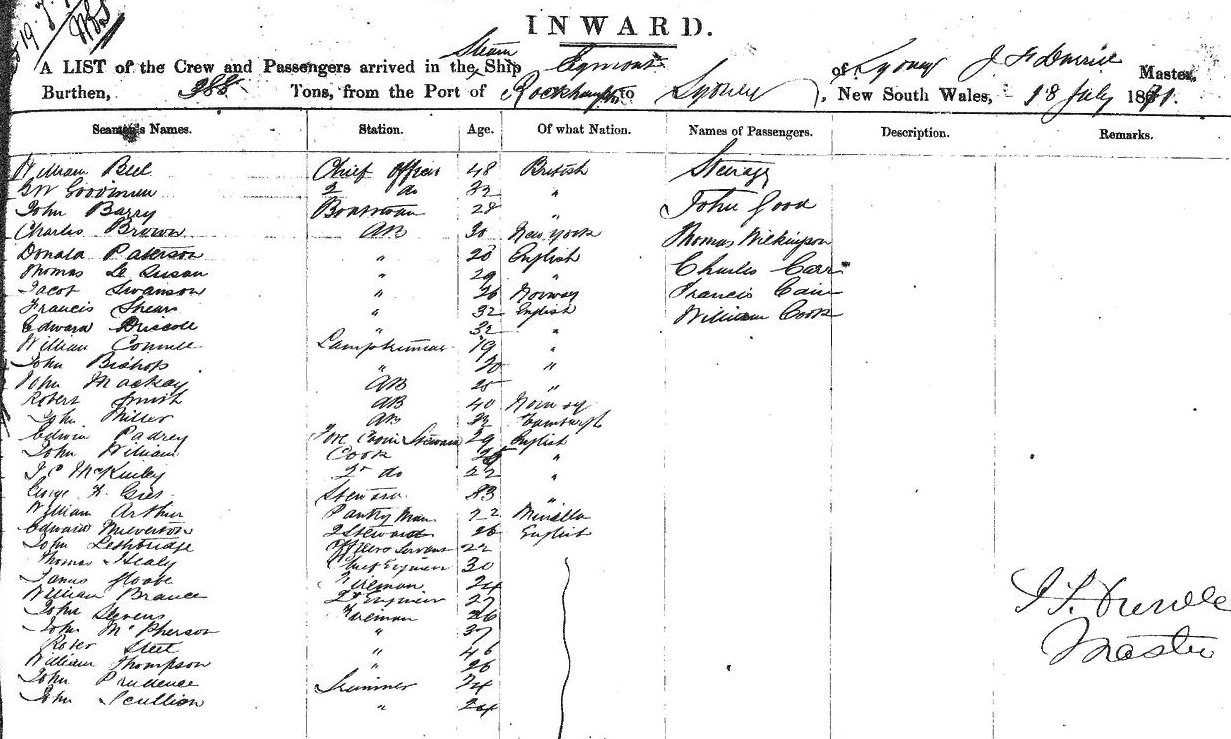 INWARD.
A LIST of the Crew and Passengers arrived in the Steam Ship Egmont of Sydney Master,
Burthen, 388 Tons, from the Port of Rockhampton to Sydney, New South Wales, 18 July 1871.
Seamen's Names. Station. Age. Of what Nation. Names of Passengers. Description. Remarks.
William Bell Chief Officer 48 British Steerage
GW Goodman 2 do 32 " John Good
John Barry Boatswain 28 "
Charles Brown AB 30 New York Thomas Wilkinson
Donald Paterson " 28 English
Thomas Le Susan " 29 " Charles Carr
Jacob Swanson " 26 Norway Francis Cain
Francis Shears " 32 English William Cook
Edward Driscoll " 32 "
William Lamptrimmer 19 "
John Bishop " 20 "
John Mackay AB 25 "
Robert Smith AB 40 Norway
John Miller AB 32 Edinburgh
Edwin Padrey Fore Cabin Steward 29 English
John William Cook 25 "
McKinley 2nd do 22 "
George Steward 33 "
William Arthur Pantry Man 22 Manilla
Edward Milverton 2 Steward 26 English
John Lethbridge Officers Servant 22
Thomas Healy Chief Engineer 30
James Fireman 24
William Brance 2d Engineer 27
John Stevens Fireman 26
John McPherson " 37
Steel " 46
William Thompson " 26
John Prudence Trimmer 24
John Scullion " 24
Master